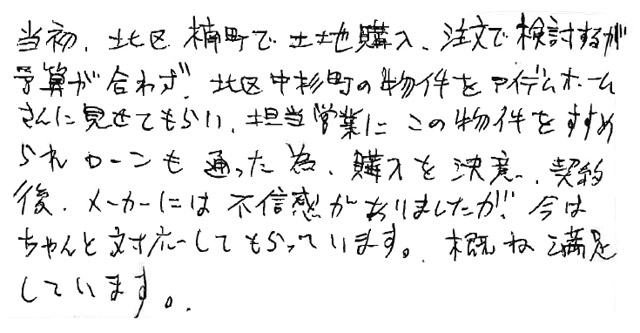 当初、北区 楠町で土地購入、注文で検討するが
予算が合わず、北区中杉町の物件をアイデムホーム
さんに見せてもらい、担当営業にこの物件をすすめ
られローンも通った為、購入を決意、契約
後、メーカーには不信感がありましたが、今は
ちゃんと対応してもらっています。概ね満足
しています。